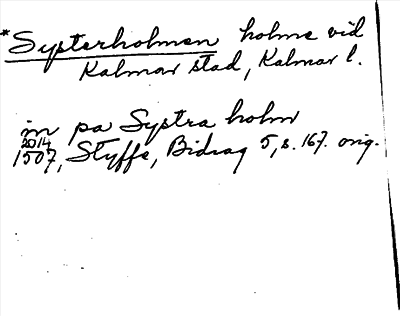 *Systerholmen holme vid
Kalmar stad, Kalmar l.
in pa Systra holm
20/4
1507, Styffe, Bidrag 5, s. 167. orig.